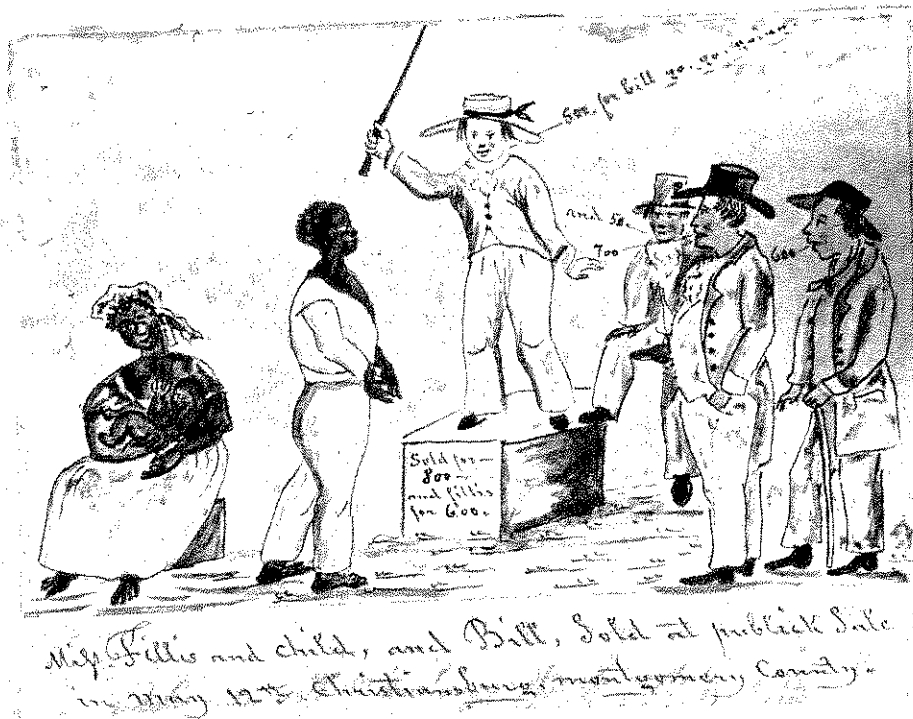 500 for bill go. go. going.
and 50.
700
600
Sold for —
800 —
and fillis
for 600.
Miss Fillis and child, and Bill, Sold at publick Sale
in May 12th. Christiansburg, montgomery County.